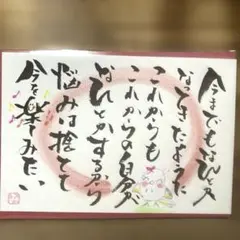 今までもなんとか
なってきたように
これからも
これからの自分が
なんとかするから
悩みは捨てて
今を楽しみたい